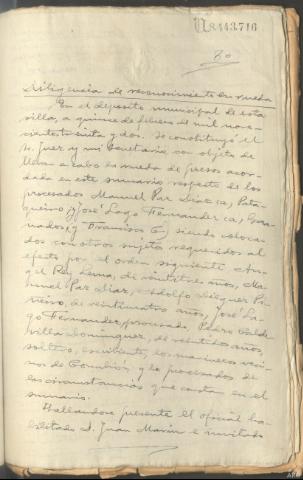 80
Diligencia de reconocimiento en rueda
En el deposito municipal de esta
villa, a quince de febrero de mil nove-
cientos treinta y dos. Se constituyó el
Sr. Juez y mi Secretaria con objeto de
llevar a cabo la rueda de presos acor-
dada en este sumario respecto de los
procesados Manuel Paz Diaz (a)
y José Lago Fernandez (a)
y Francisco siendo coloca-
dos con otros sujetos requeridos al
efecto por el orden siguiente
Rey Lema, de veintitres años, Ma-
nuel Paz Diaz, Adolfo
de veinticuatro años, José La-
go Fernandez, procesado, Pedro
Dominguez, de veintidos años,
soltero, escribiente, los marineros veci-
nos de y los procesados de
las circunstancias que constan en el
sumario.
Hallandose presente el oficial ha-
bilitado D. Juan Marin e invitado